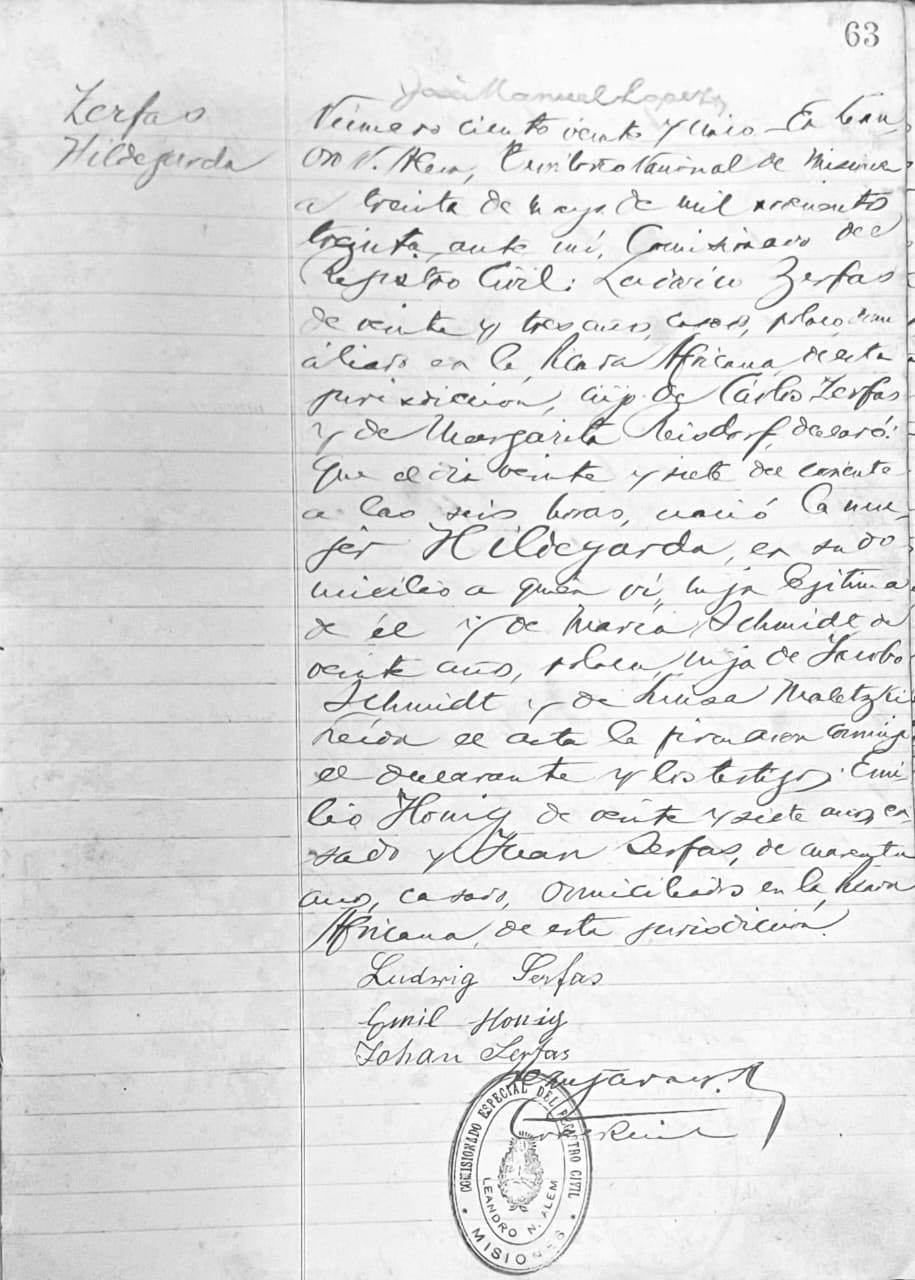 63
José Manuel Lopez
Zerfas
Hildegarda
Número ciento veinte y cinco - En Lean-
dro N. Alem, Territorio Nacional de Misiones
a treinta de mayo de mil novecientos
treinta, ante mí, Comisionado del
Registro Civil: Ludovico Zerfas
de veinte y tres años, casado, polaco, domi
ciliado en la Picada Africana, de esta
jurisdicción, hijo de Carlos Zerfas
y de Margarita Reisdorf, declaró:
Que el dia veinte y siete del corriente
a las seis horas, nació la mu-
jer Hildegarda, en su do
micilio a quien ví, hija lejitima
de él y de María Schmidt de
veinte años, polaca, hija de Jacobo
Schmidt y de Luisa Maletzki
Leída el acta la firmaron conmigo
el declarante y los testigos: Emi-
lio Honig de veinte y siete años, ca
sado y Juan Serfas, de cuarenta
años, casado, domiciliados en la Picada
Africana, de esta jurisdicción.
Ludwig Serfas
Emil Honig
Johan Serfas
COMISIONADO ESPECIAL DEL REGISTRO CIVIL
LEANDRO N. ALEM
MISIONES